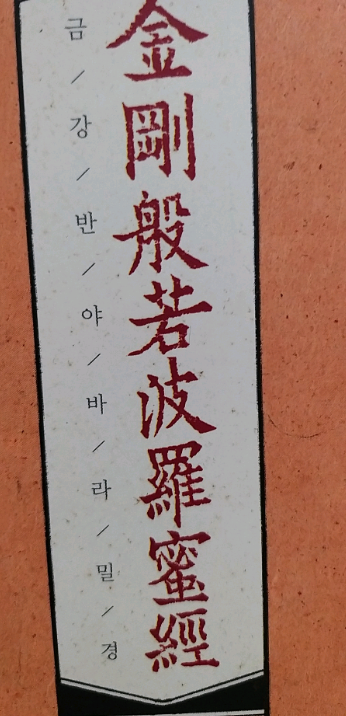 金剛般若波羅蜜經
금/강/반/야/바/라/밀/경